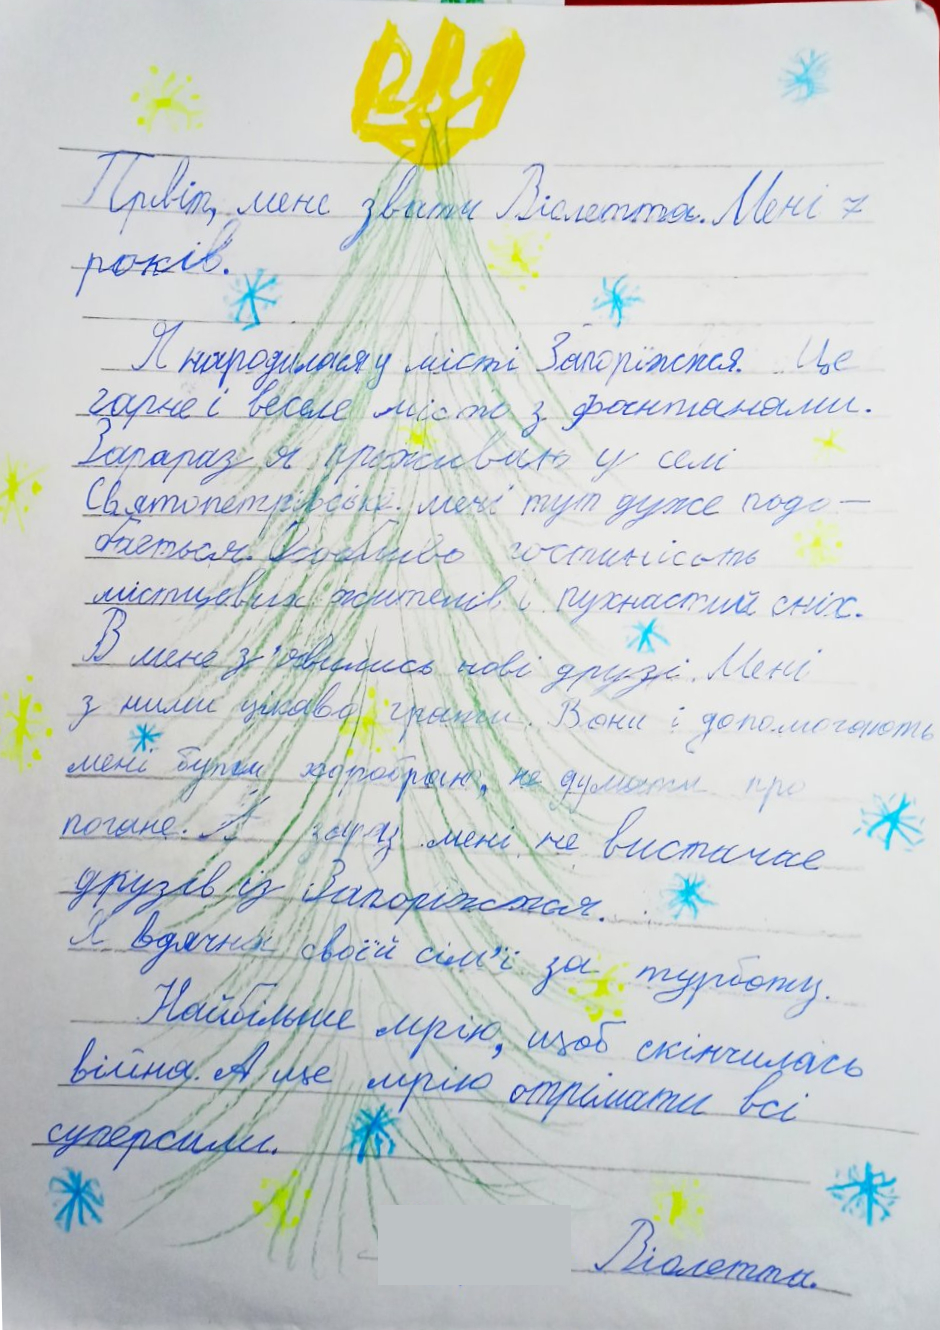 Првіт, мене звати Віолетта. Мені 7
років.
Я народилася у місті Запоріжжя. Це
гарне і веселе місто з фонтанами.
Зарараз я проживаю у селі
Святопетрівське. мені тут дуже подо-
бається. Особливо гостинність
містцевих жителів і пухнастий сніх.
В мене з'явились нові друзі. Мені
з ними цікаво грати. Вони і допомогають
мені бути хороброю, не думати про
погане. А зараз мені не вистачає
друзів із Запоріжжя.
Я вдячна своїй сім'ї за турботу.
Найбільше мрію, щоб скінчилась
війна. А ще мрію отрімати всі
суперсили.
Віолетта.